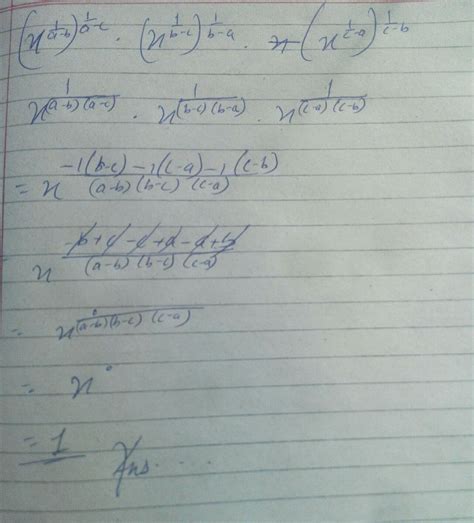 (x^{1/(a-b)})^{1/(a-c)} . (x^{1/(b-c)})^{1/(b-a)} . (x^{1/(c-a)})^{1/(c-b)}
x^{1/((a-b)(a-c))} . x^{1/((b-c)(b-a))} . x^{1/((c-a)(c-b))}
= x^{(-1(b-c)-1(c-a)-1(c-b))/((a-b)(b-c)(c-a))}
= x^{(-b+c-c+a-a+b)/((a-b)(b-c)(c-a))}
= x^{0/((a-b)(b-c)(c-a))}
= x^0
= 1 Ans. . . .